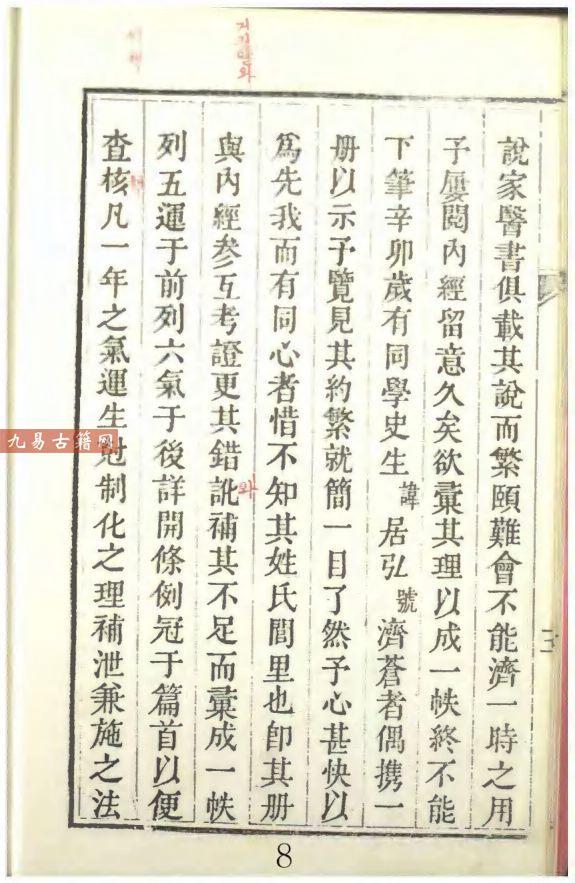 說家醫書俱載其說而繁頤難會不能濟一時之用
予屢閱內經留意久矣欲彚其理以成一帙終不能
下筆辛卯歲有同學史生諱居弘號濟蒼者偶携一
册以示予覽見其約繁就簡一目了然予心甚快以
爲先我而有同心者惜不知其姓氏閭里也卽其册
與內經參互考證更其錯訛補其不足而彚成一帙
列五運于前列六氣于後詳開條例冠于篇首以便
查核凡一年之氣運生尅制化之理補泄兼施之法
九易古籍网
8